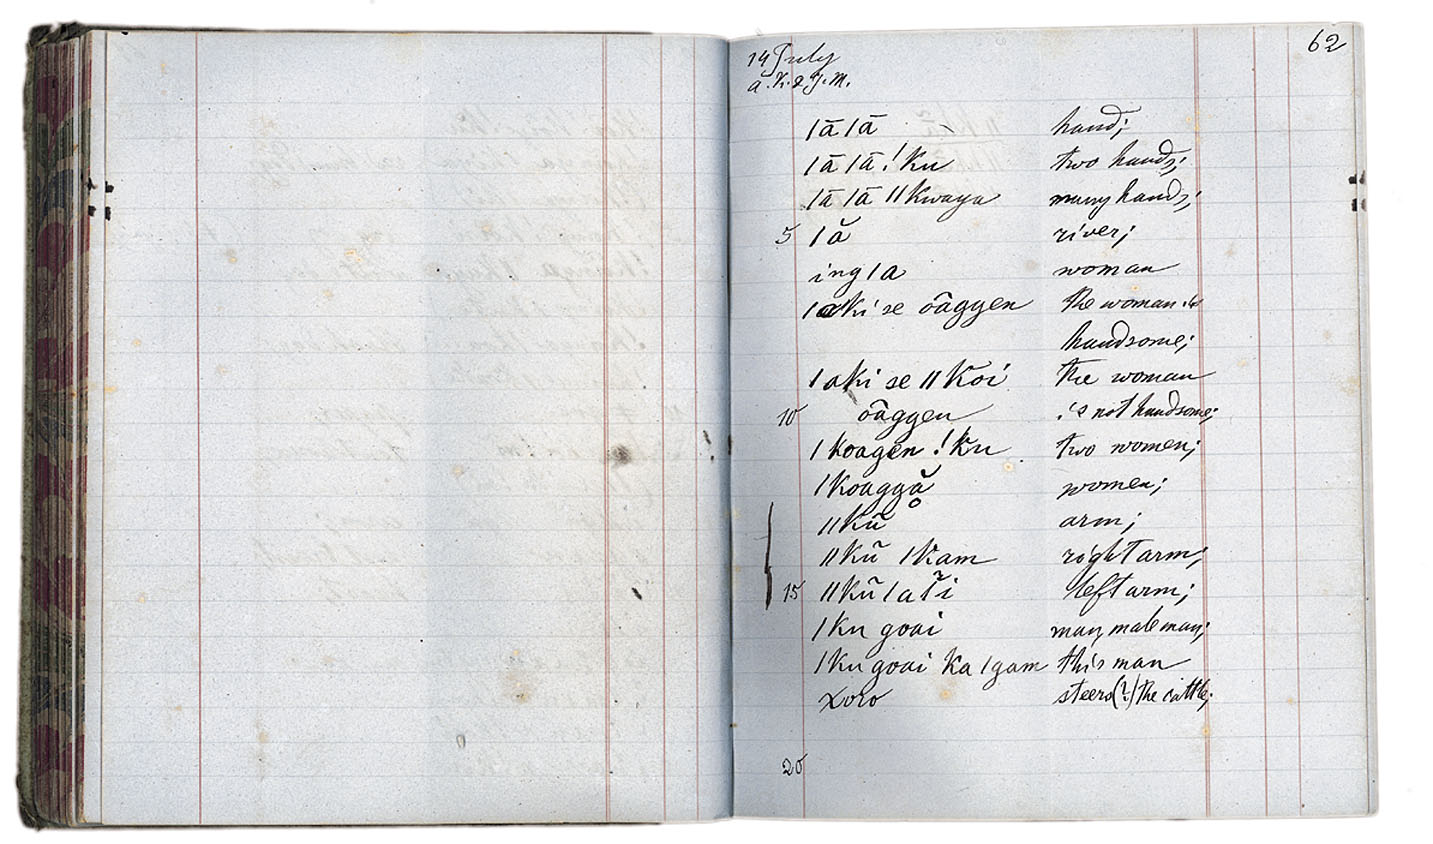 62
14 July
A.K. & J.M.
|ā |ā hand;
|ā |ā !ku two hands;
|ā |ā ||kwaya many hands;
5 |ă river;
ing|a woman
|aki se oâggen the woman is
handsome;
|aki se ||koi the woman
10 oâggen is not handsome;
|koagen !ku two women;
|koaggă women;
||kũ arm;
||kũ |kam right arm;
15 ||kũ |aĭi left arm;
|ku goai man, male man;
|ku goai ka |gam this man
xoro steers(?) the cattle;
20